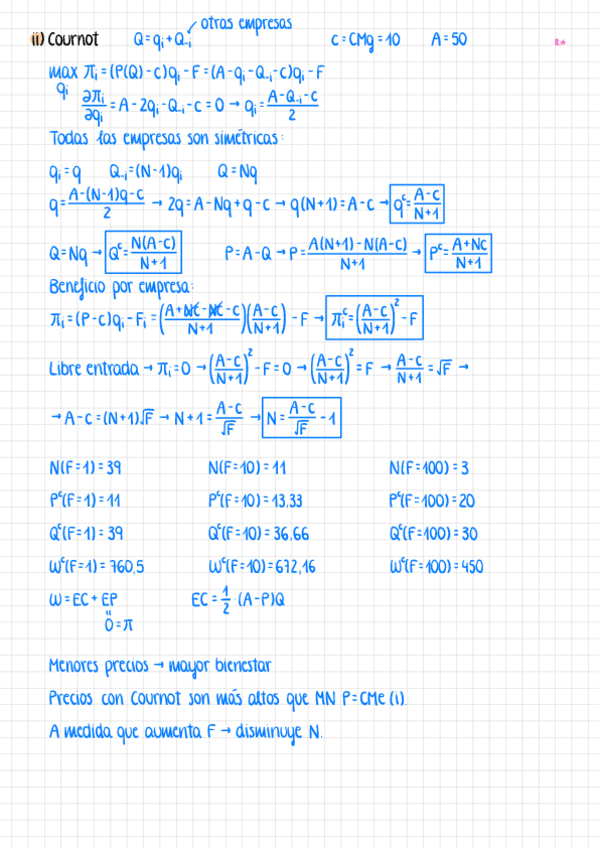 otras empresas
ii) Cournot Q = qi + Q-i c = CMg = 10 A = 50
max πi = (P(Q) - c)qi - F = (A - qi - Q-i - c)qi - F
qi
∂πi/∂qi = A - 2qi - Q-i - c = 0 → qi = (A - Q-i - c)/2
Todas las empresas son simétricas:
qi = q Q-i = (N-1)qi Q = Nq
q = (A - (N-1)q - c)/2 → 2q = A - Nq + q - c → q(N+1) = A - c → q^c = (A - c)/(N+1)
Q = Nq → Q^c = N(A - c)/(N+1) P = A - Q → P = (A(N+1) - N(A - c))/(N+1) → P^c = (A + Nc)/(N+1)
Beneficio por empresa:
πi = (P - c)qi - Fi = ((A + Nc - Nc - c)/(N+1))((A - c)/(N+1)) - F → πi^c = ((A - c)/(N+1))^2 - F
Libre entrada → πi = 0 → ((A - c)/(N+1))^2 - F = 0 → ((A - c)/(N+1))^2 = F → (A - c)/(N+1) = √F →
→ A - c = (N+1)√F → N + 1 = (A - c)/√F → N = (A - c)/√F - 1
N(F=1) = 39 N(F=10) = 11 N(F=100) = 3
P^c(F=1) = 11 P^c(F=10) = 13,33 P^c(F=100) = 20
Q^c(F=1) = 39 Q^c(F=10) = 36,66 Q^c(F=100) = 30
W^c(F=1) = 760,5 W^c(F=10) = 672,16 W^c(F=100) = 450
W = EC + EP EC = 1/2 · (A - P)Q
"
0 = π
Menores precios → mayor bienestar
Precios con Cournot son más altos que MN P = CMe (i).
A medida que aumenta F → disminuye N.